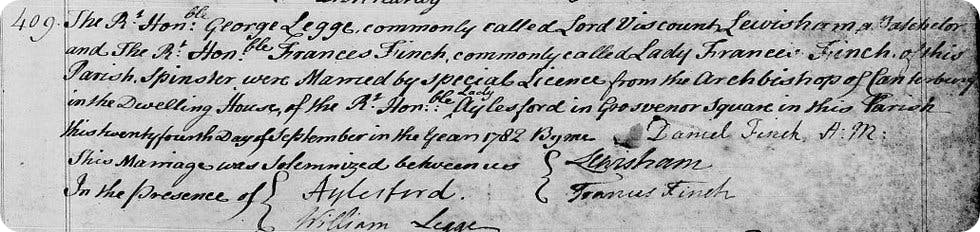 409. The Rt. Honble. George Legge, commonly called Lord Viscount Lewisham, a Batchelor
and The Rt. Honble Frances Finch, commonly called Lady Frances Finch, of this
Parish, Spinster were Married by Special Licence from the Archbishop of Canterbury
in the Dwelling House, of the Rt. Honble. Lady Aylesford in Grosvenor Square in this Parish
this twenty fourth Day of September in the Year 1782 By me Daniel Finch A:M:
This Marriage was Solemnized between us { Lewisham
Frances Finch
In the Presence of { Aylesford.
William Legge